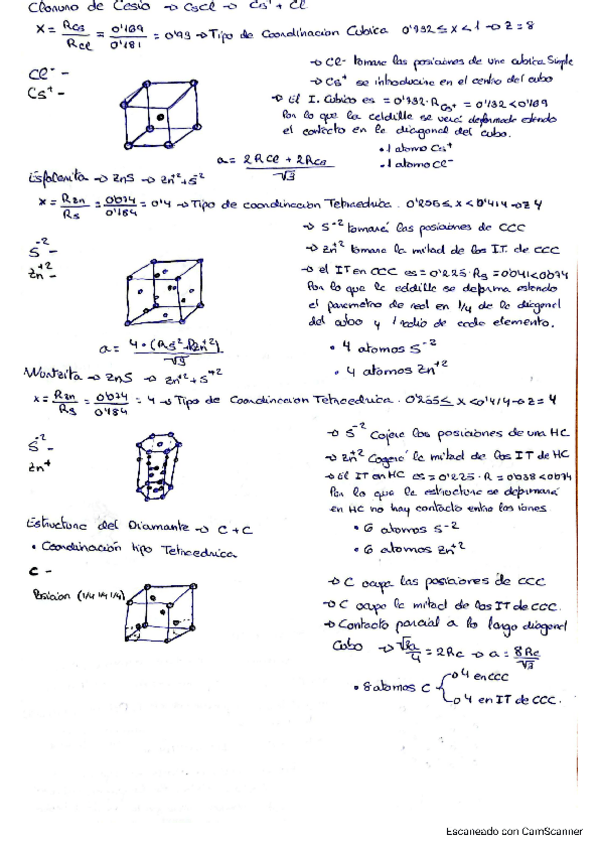 Cloruro de Cesio → CsCl → Cs⁺ + Cl⁻
x = RCs/RCl = 0'169/0'181 = 0'93 → Tipo de Coordinación Cúbica 0'732 ≤ x < 1 → z = 8
→ Cl⁻ tomara las posiciones de una cubica Simple
Cl⁻ -
→ Cs⁺ se introducirá en el centro del cubo
Cs⁺ -
→ El I. Cúbico es = 0'732·RCs⁺ = 0'132 < 0'169
Por lo que la celdilla se verá deformada estando
el contacto en la diagonal del cubo.
• 1 atomo Cs⁺
a = 2RCl + 2RCs/√3
• 1 atomo Cl⁻
Esfalerita → ZnS → Zn⁺² + S⁻²
x = RZn/RS = 0'074/0'184 = 0'4 → Tipo de coordinación Tetraedrica. 0'255 ≤ x < 0'414 → z 4
→ S⁻² tomará las posiciones de CCC
S⁻² -
→ Zn⁺² tomara la mitad de los I.T. de CCC
Zn⁺² -
→ el IT en CCC es = 0'225·RS = 0'041 < 0'074
Por lo que la celdilla se deforma estando
el parametro de red en 1/4 de la diagonal
del cubo y 1 radio de cada elemento.
a = 4·(RS² + RZn⁺²)/√3
• 4 atomos S⁻²
• 4 atomos Zn⁺²
Wurtzita → ZnS → Zn⁺² + S⁺²
x = RZn/RS = 0'074/0'184 = 4 → Tipo de Coordinacion Tetraedrica. 0'255 ≤ x < 0'414 → z = 4
→ S⁻² Cojera las posiciones de una HC
S⁻² -
→ Zn⁺² Cogerá la mitad de los IT de HC
Zn⁺ -
→ El IT en HC es = 0'225·R = 0'038 < 0'074
Por lo que la estructura se deformará
en HC no hay contacto entre los iones
• 6 atomos S⁻²
Estructura del Diamante → C + C
• 6 atomos Zn⁺²
• Coordinación tipo Tetraedrica
C -
→ C ocupa las posiciones de CCC
Posicion (1/4 1/4 1/4)
→ C ocupa la mitad de los IT de CCC.
→ Contacto parcial a lo largo diagonal
Cubo → √3a/4 = 2Rc → a = 8Rc/√3
• 8 atomos C
→ 4 en CCC
→ 4 en IT de CCC.
Escaneado con CamScanner